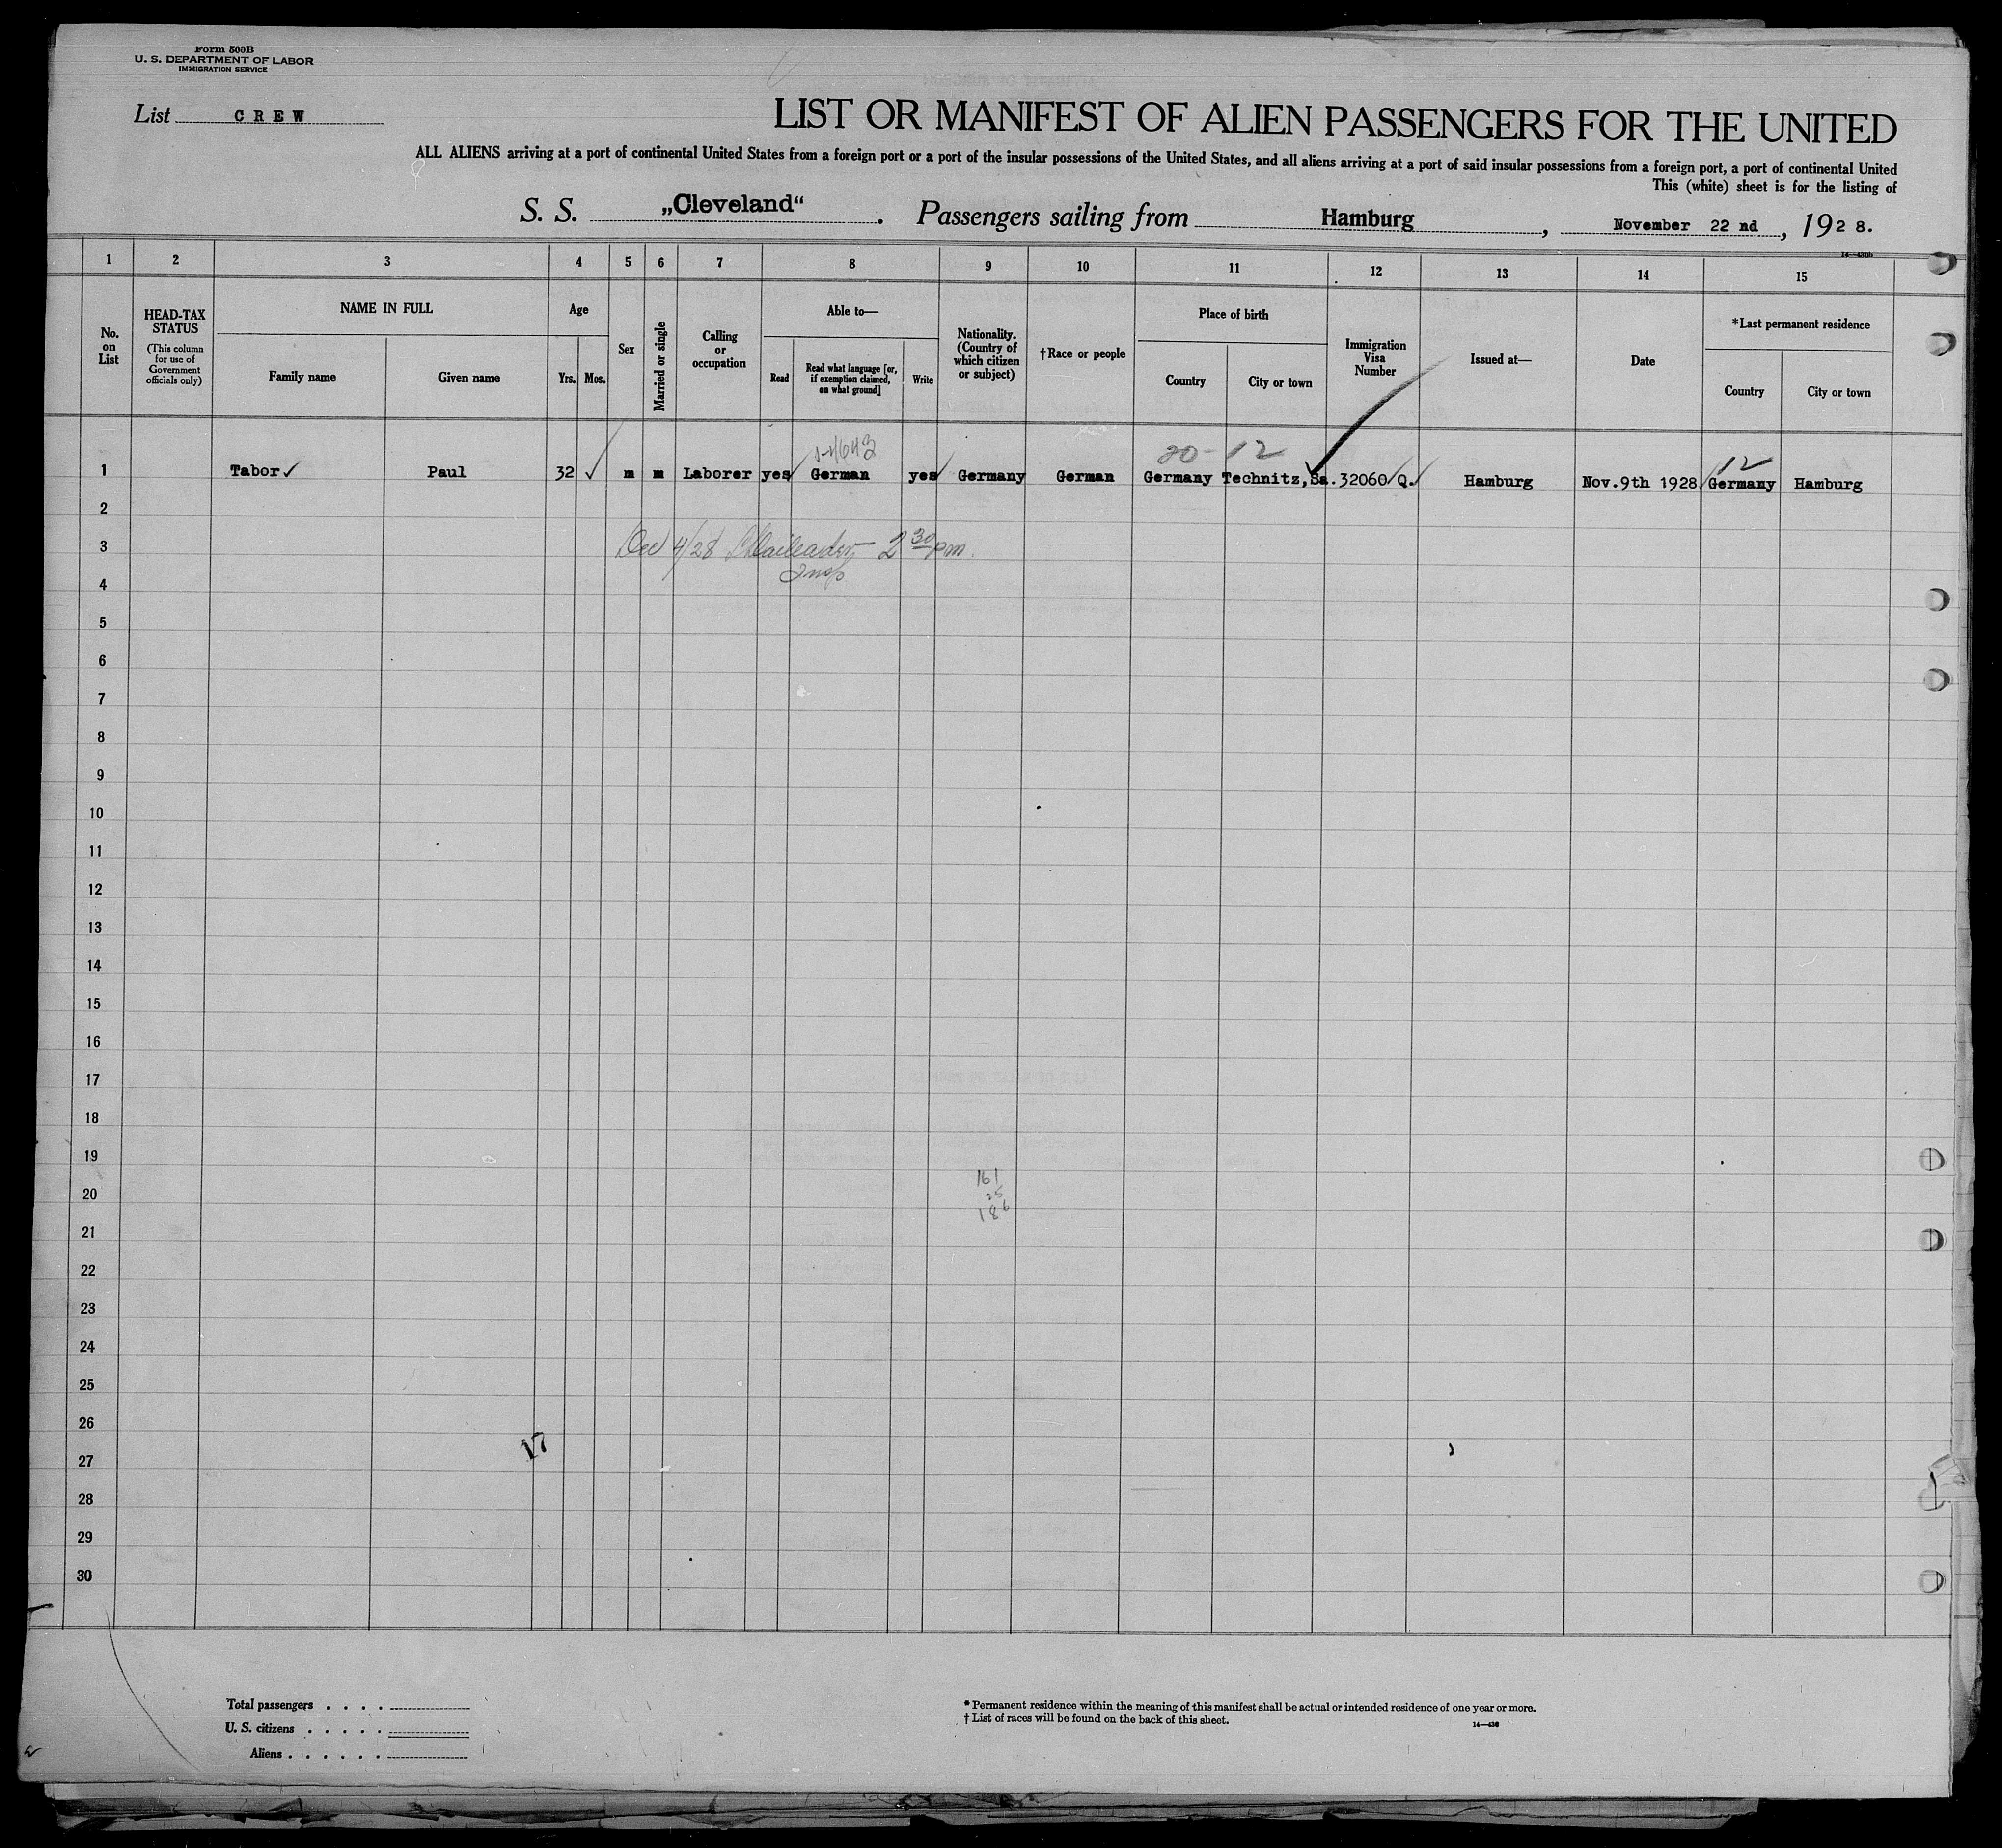 Form 500B
U. S. DEPARTMENT OF LABOR
IMMIGRATION SERVICE
List CREW
LIST OR MANIFEST OF ALIEN PASSENGERS FOR THE UNITED
ALL ALIENS arriving at a port of continental United States from a foreign port or a port of the insular possessions of the United States, and all aliens arriving at a port of said insular possessions from a foreign port, a port of continental United
This (white) sheet is for the listing of
S. S. „Cleveland“. Passengers sailing from Hamburg, November 22 nd, 1928.
1 2 3 4 5 6 7 8 9 10 11 12 13 14 15
No. on List
HEAD-TAX STATUS
(This column for use of Government officials only)
NAME IN FULL
Family name
Given name
Age
Yrs. Mos.
Sex
Married or single
Calling or occupation
Able to—
Read
Read what language [or, if exemption claimed, on what ground]
Write
Nationality. (Country of which citizen or subject)
†Race or people
Place of birth
Country
City or town
Immigration Visa Number
Issued at—
Date
*Last permanent residence
Country
City or town
20-12
12
1 Tabor✓ Paul 32 ✓ m m Laborer yes German yes Germany German Germany Technitz, Sa. 32060/Q. Hamburg Nov.9th 1928 Germany Hamburg
2
3 Dec 4/28 2 30 pm.
Insp
4
5
6
7
8
9
10
11
12
13
14
15
16
17
18
19
161
20
25
186
21
22
23
24
25
26
17
27
28
29
30
Total passengers . . . .
U. S. citizens . . . . .
Aliens . . . . . .
* Permanent residence within the meaning of this manifest shall be actual or intended residence of one year or more.
† List of races will be found on the back of this sheet.